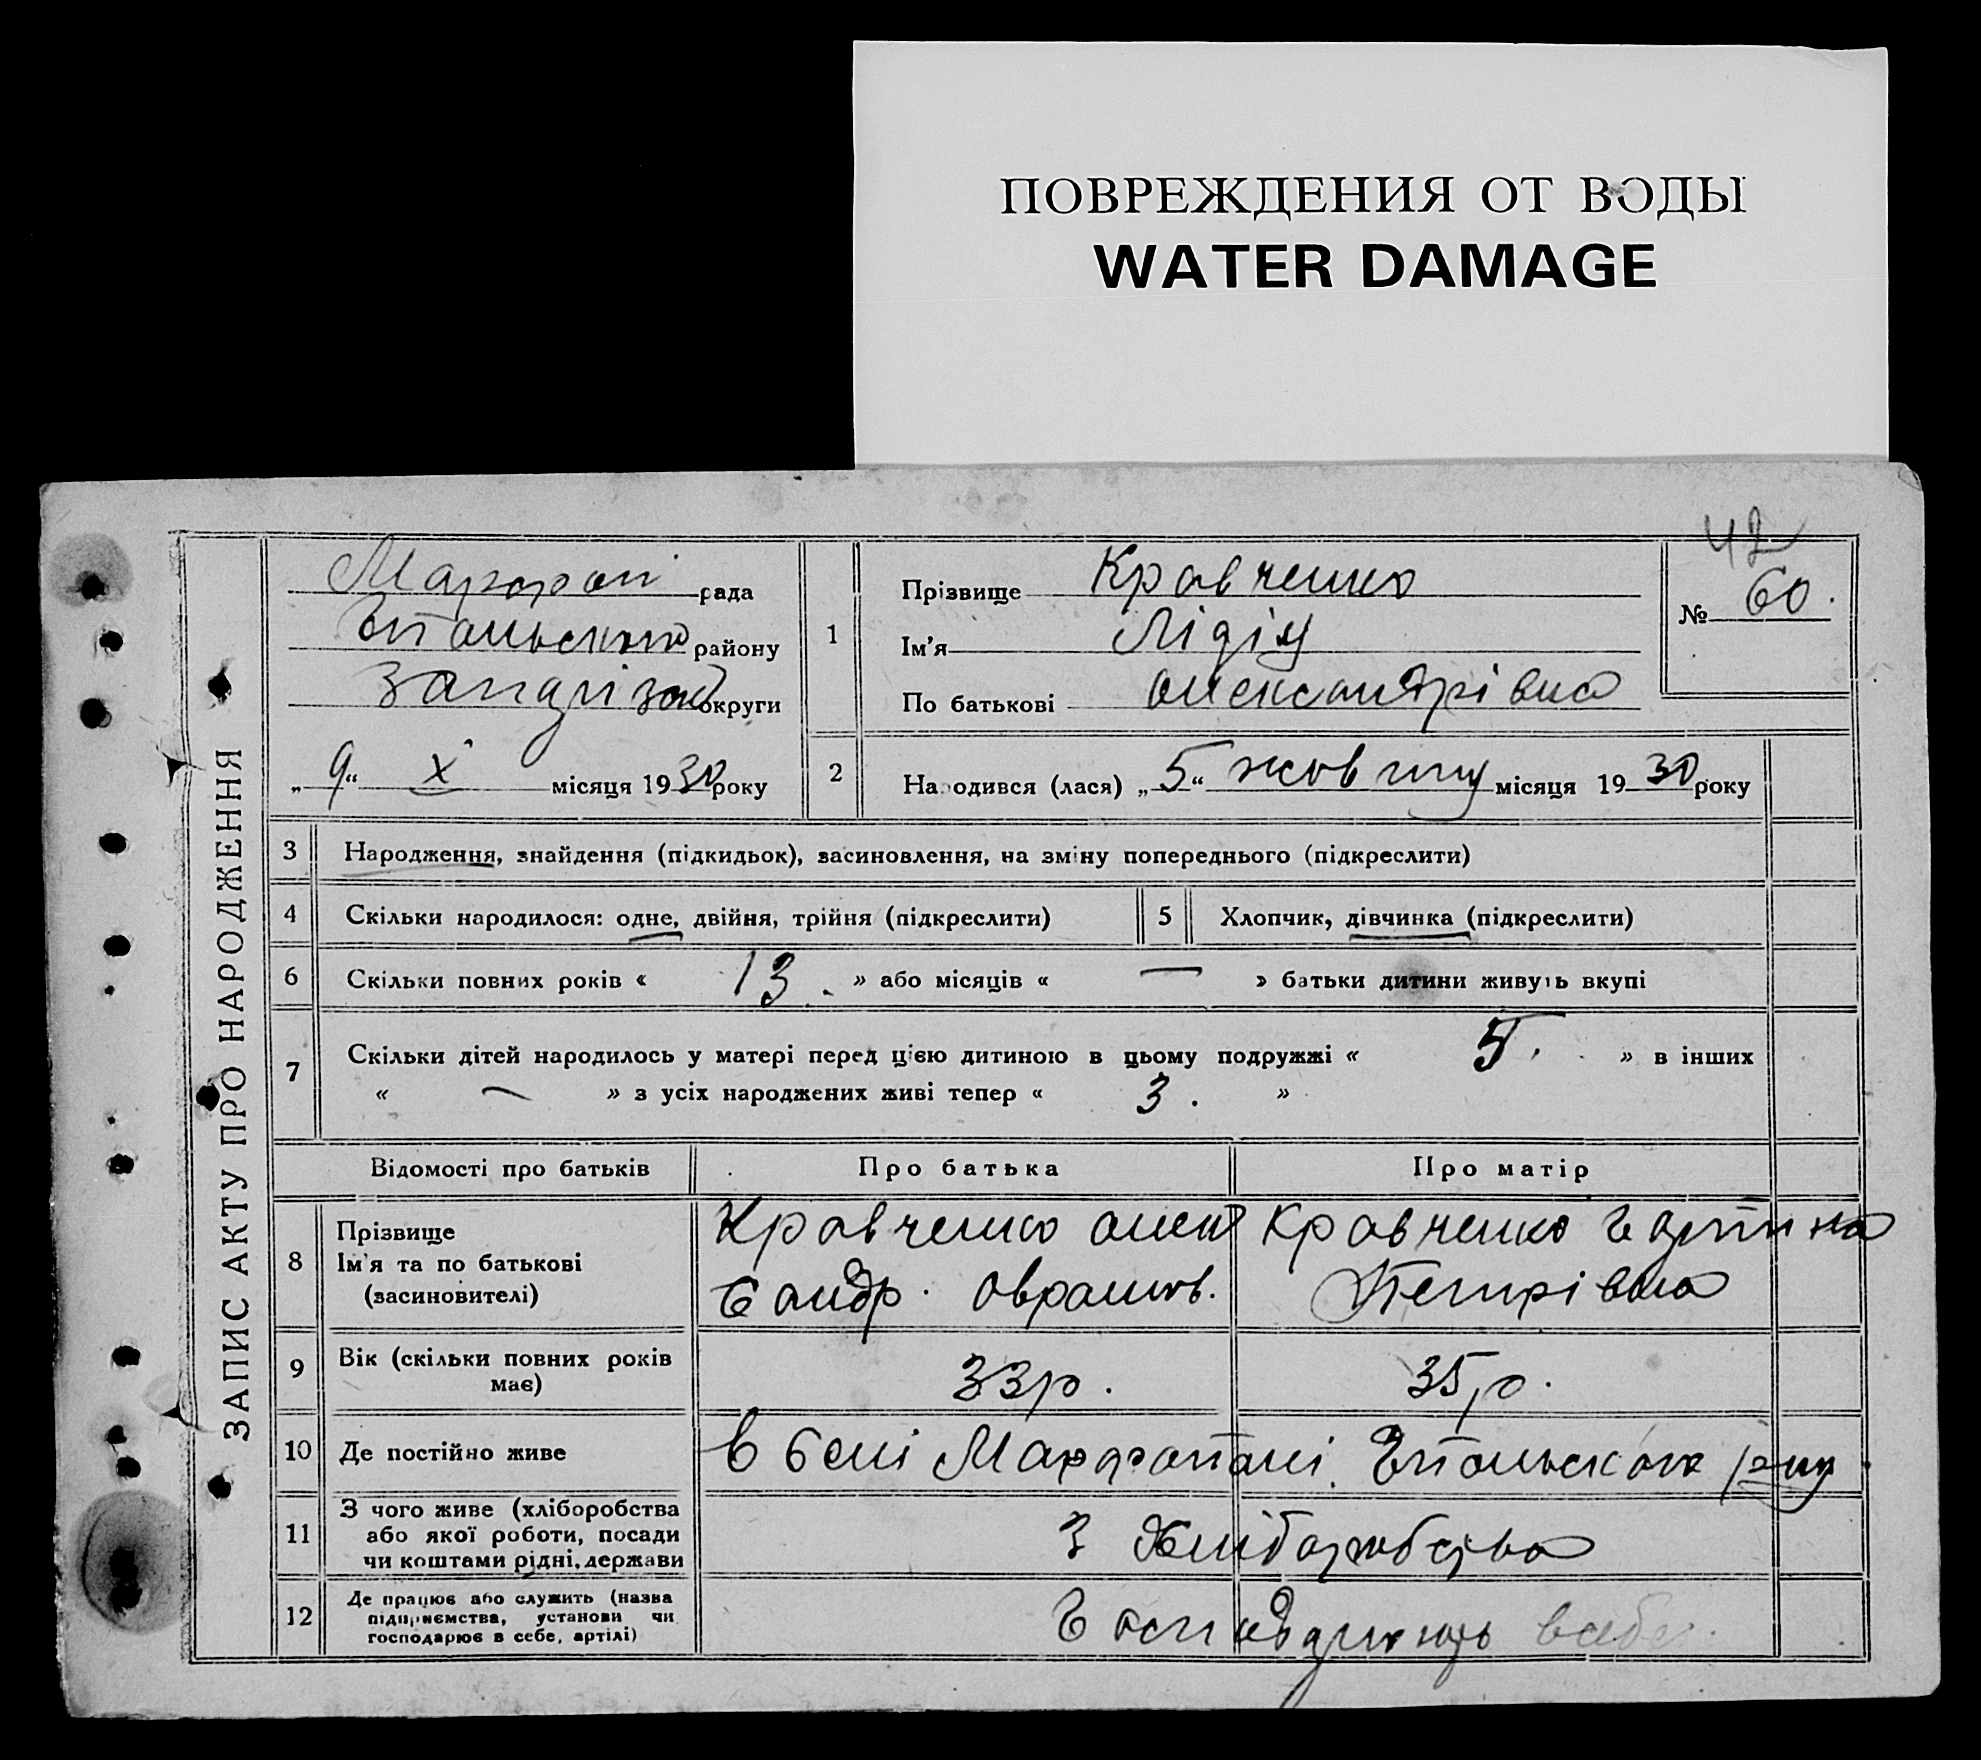 ПОВРЕЖДЕНИЯ ОТ ВОДЫ
WATER DAMAGE
42
ЗАПИС АКТУ ПРО НАРОДЖЕННЯ
рада
району
округи
„9“ X місяця 1930 року
1
Прізвище Кравченко
Ім'я Лідія
По батькові Олександрівна
№ 60.
2 Народився (лася) „5“ жовтня місяця 1930 року
3 Народження, знайдення (підкидьок), засиновлення, на зміну попереднього (підкреслити)
4 Скільки народилося: одне, двійня, трійня (підкреслити) 5 Хлопчик, дівчинка (підкреслити)
6 Скільки повних років « 13. » або місяців « — » батьки дитини живуть вкупі
7 Скільки дітей народилось у матері перед цією дитиною в цьому подружжі « 5. » в інших
« — » з усіх народжених живі тепер « 3. »
Відомості про батьків Про батька Про матір
8 Прізвище
Ім'я та по батькові
(засиновителі)
Кравченко Олек
сандр.
Кравченко
Петрівна
9 Вік (скільки повних років
має)
33 р. 35 р.
10 Де постійно живе в селі
11 З чого живе (хліборобства
або якої роботи, посади
чи коштами рідні, держави
З Хліборобства
12 Де працює або служить (назва
підприємства, установи чи
господарює в себе, артілі)